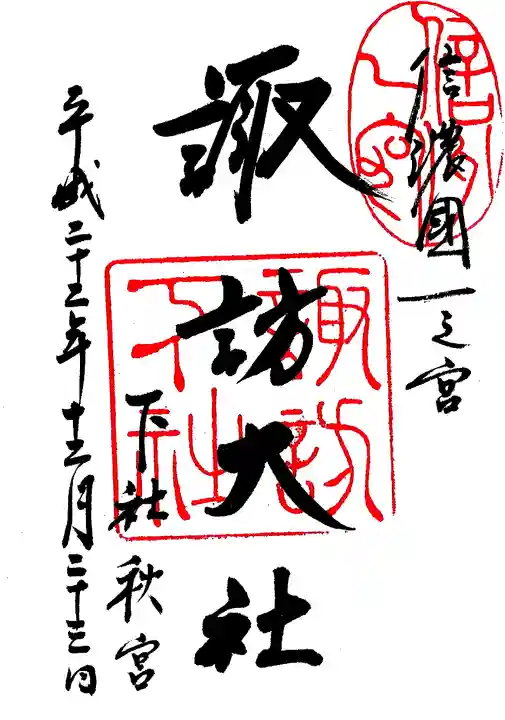 信濃國一之宮
諏訪大社
下社秋宮
平成二十三年十二月二十三日
諏訪
下社